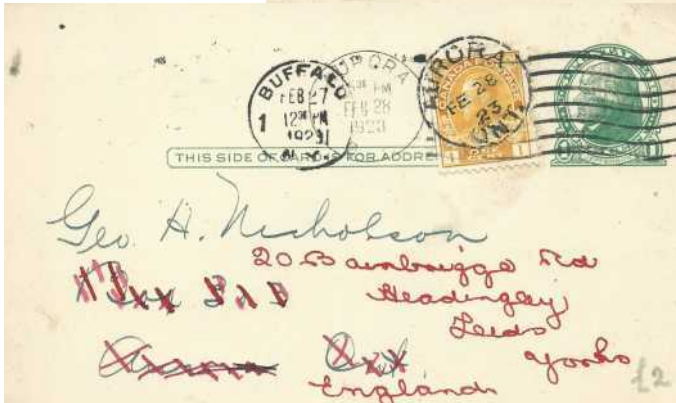 BUFFALO
FEB 27
12 30 PM
1923
N.Y.
1
AURORA
PM
FEB 28
1923
AURORA
FE 28
23
ONT.
THIS SIDE OF CARD IS FOR ADDRE
Geo. H. Nicholson
20 Bainbrigge Rd
Headingley
Leeds
Yorks
England
£2